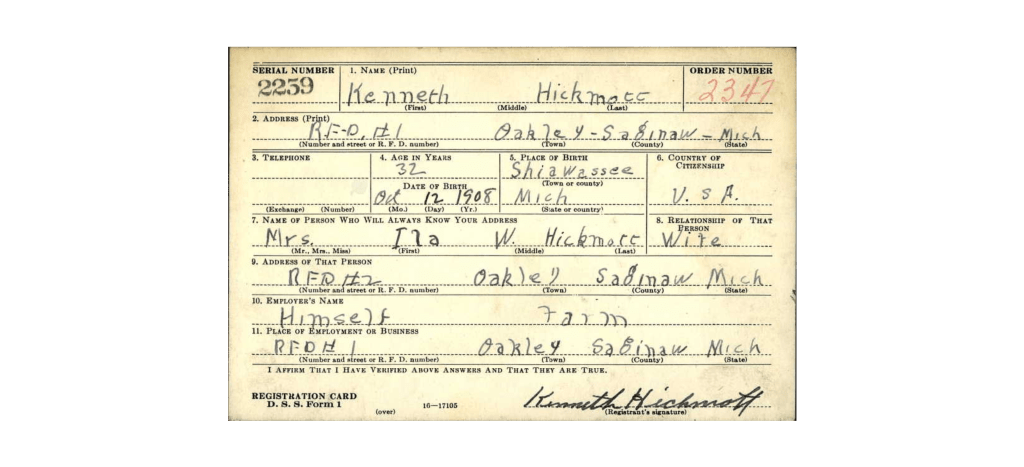 SERIAL NUMBER 1. NAME (Print) ORDER NUMBER
2259 Kenneth Hickmott 2347
(First) (Middle) (Last)
2. ADDRESS (Print)
RFD. #1 Oakley - Saginaw - Mich
(Number and street or R. F. D. number) (Town) (County) (State)
3. TELEPHONE 4. AGE IN YEARS 5. PLACE OF BIRTH 6. COUNTRY OF CITIZENSHIP
32 Shiawassee
DATE OF BIRTH (Town or county)
Oct 12 1908 Mich U. S A.
(Exchange) (Number) (Mo.) (Day) (Yr.) (State or country)
7. NAME OF PERSON WHO WILL ALWAYS KNOW YOUR ADDRESS 8. RELATIONSHIP OF THAT PERSON
Mrs. Ila W. Hickmott Wife
(Mr., Mrs., Miss) (First) (Middle) (Last)
9. ADDRESS OF THAT PERSON
RFD #2 Oakley Saginaw Mich
(Number and street or R. F. D. number) (Town) (County) (State)
10. EMPLOYER'S NAME
Himself Farm
11. PLACE OF EMPLOYMENT OR BUSINESS
RFD # 1 Oakley Saginaw Mich
(Number and street or R. F. D. number) (Town) (County) (State)
I AFFIRM THAT I HAVE VERIFIED ABOVE ANSWERS AND THAT THEY ARE TRUE.
REGISTRATION CARD
D. S. S. Form 1 16—17105 Kenneth Hickmott
(over) (Registrant's signature)